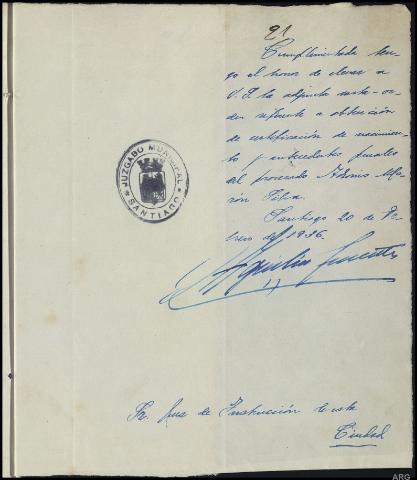 21
Cumplimentada ten-
go el honor de elevar a
V.S. la adjunta carta-or-
den referente a obtención
de certificación de nacimien-
to y antecedentes penales
del procesado
Santiago 20 de Fe-
brero del 1936.
JUZGADO MUNICIPAL
SANTIAGO
Sr. Juez de Instrucción de esta
Ciudad
ARG